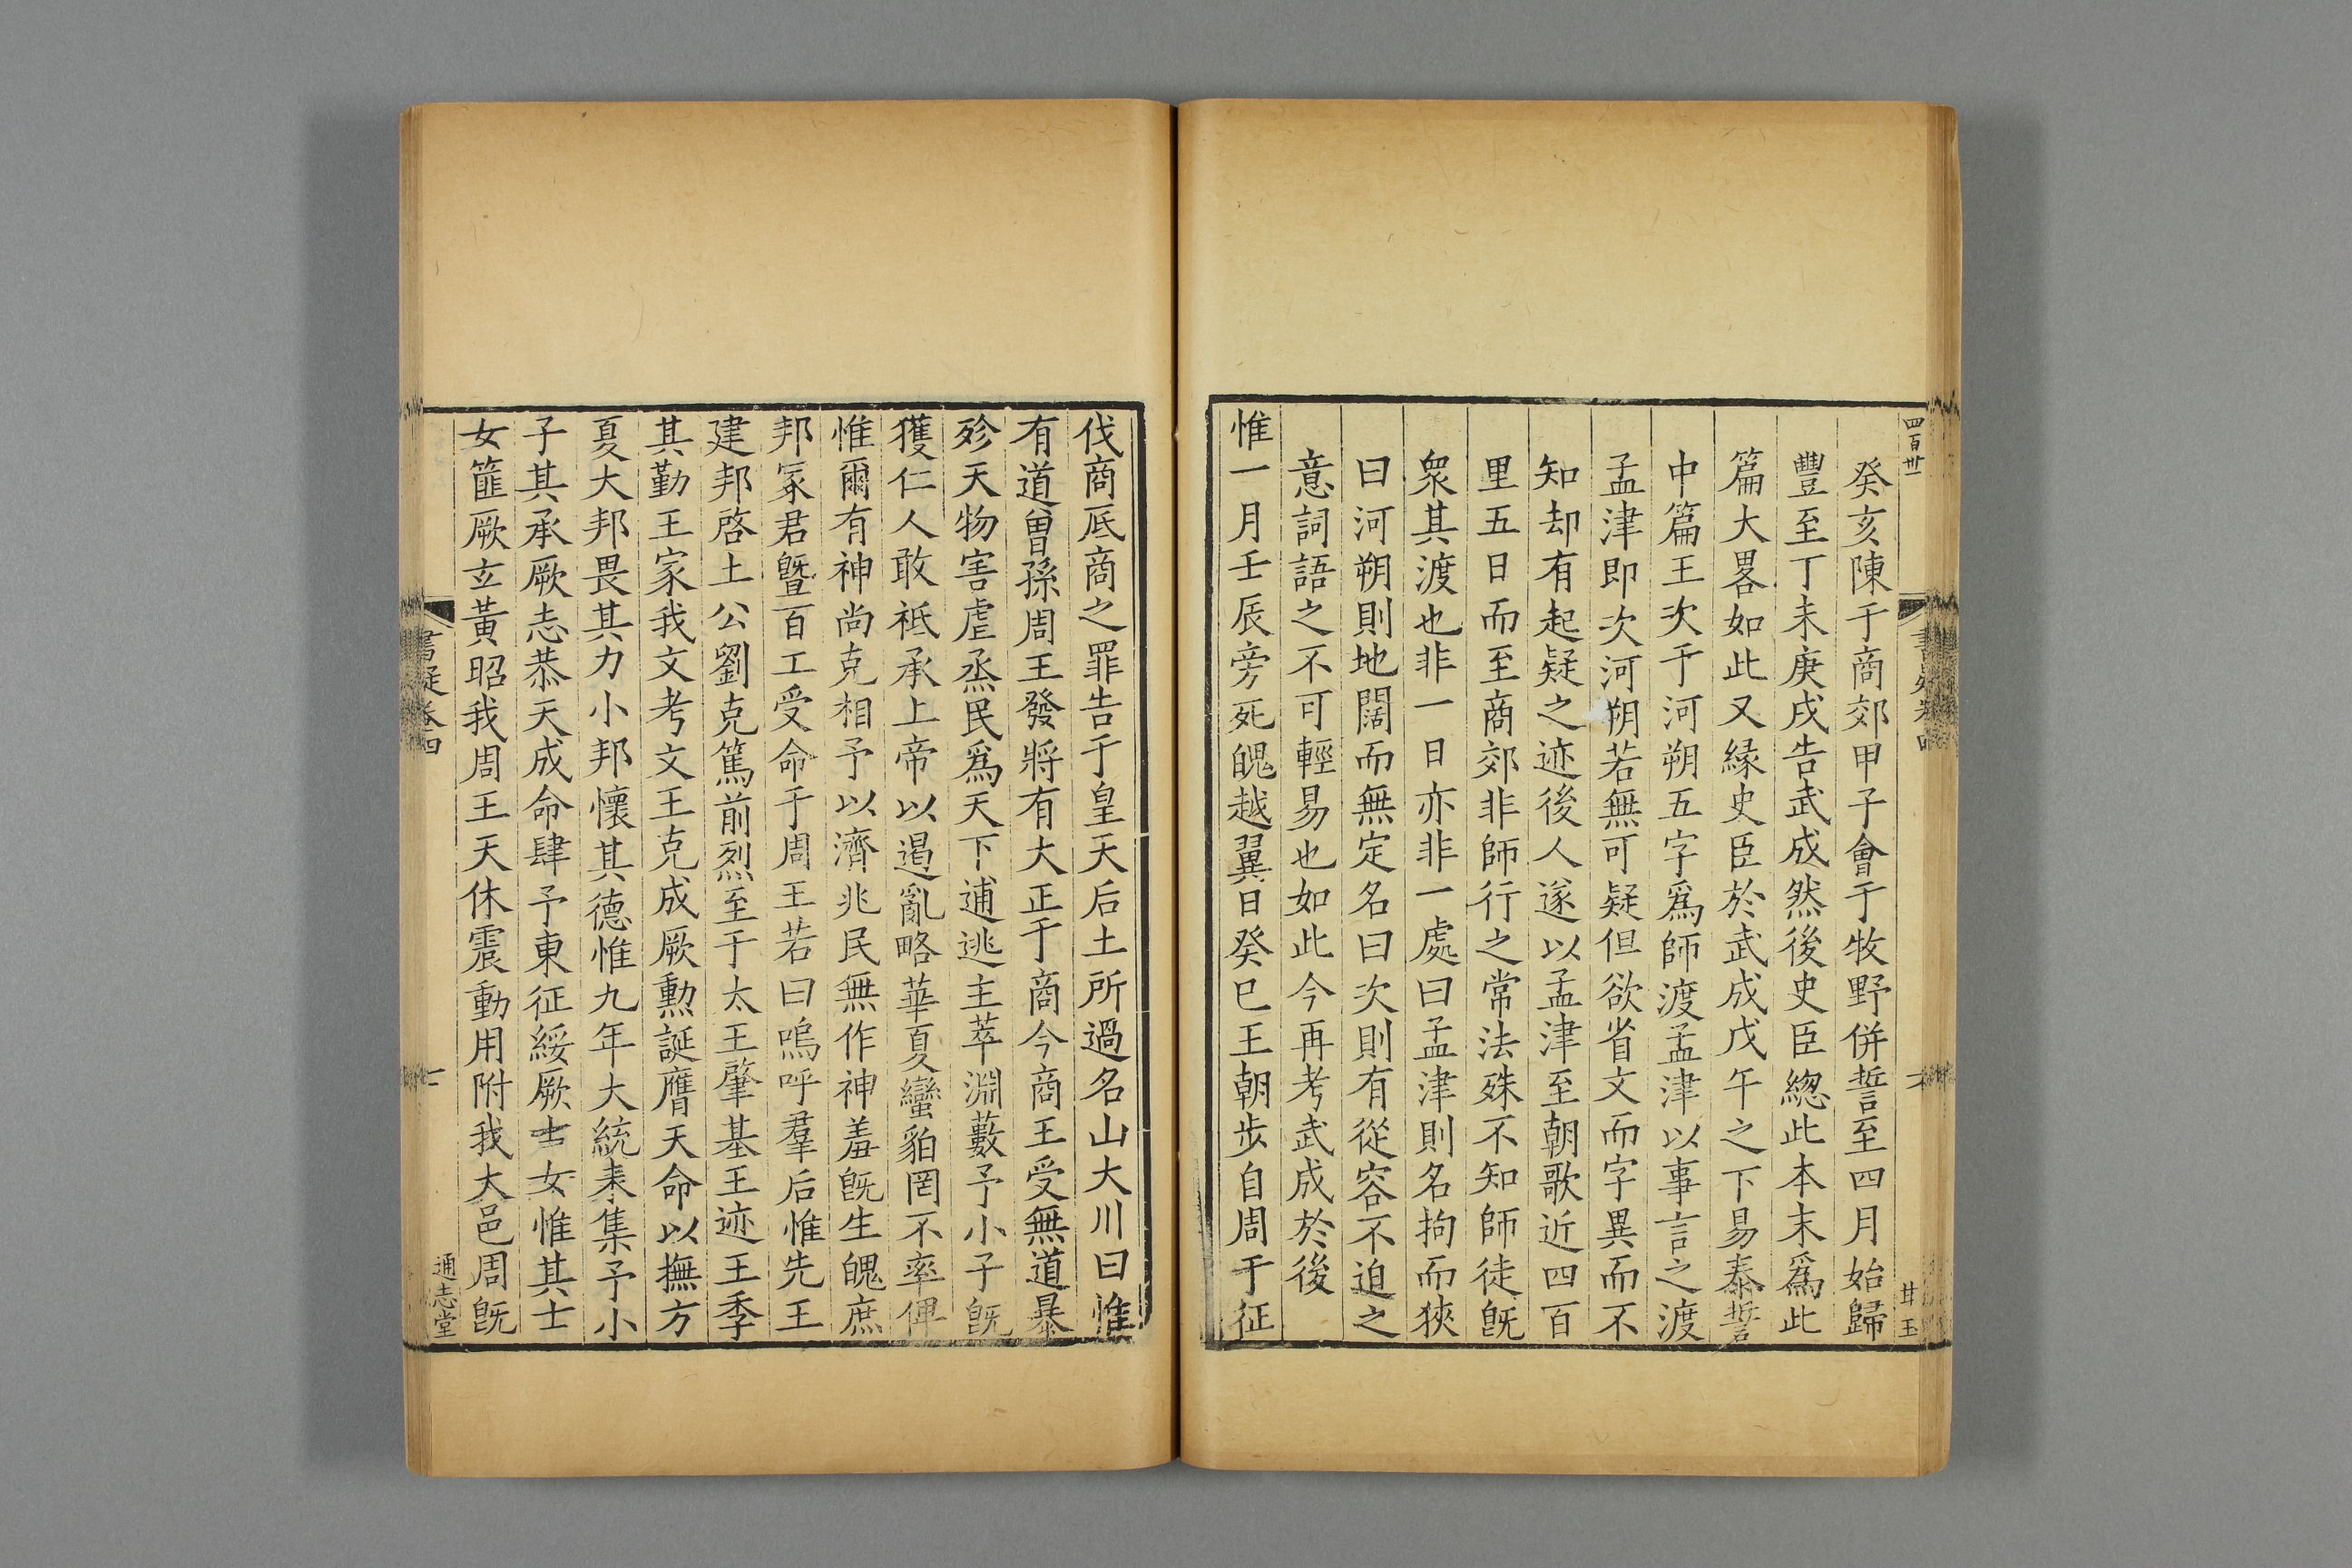 四百卅一
癸亥陳于商郊甲子會于牧野併誓至四月始歸
豐至丁未庚戌告武成然後史臣緫此本末爲此
篇大畧如此又緣史臣於武成戊午之下易泰誓
中篇王次于河朔五字爲師渡孟津以事言之渡
孟津即次河朔若無可疑但欲省文而字異而不
知却有起疑之迹後人遂以孟津至朝歌近四百
里五日而至商郊非師行之常法殊不知師徒旣
衆其渡也非一日亦非一處曰孟津則名拘而狹
曰河朔則地闊而無定名曰次則有從容不迫之
意詞語之不可輕易也如此今再考武成於後
惟一月壬辰旁死魄越翼日癸巳王朝步自周于征
伐商厎商之罪告于皇天后土所過名山大川曰惟
有道曾孫周王發將有大正于商今商王受無道暴
殄天物害虐烝民爲天下逋逃主萃淵藪予小子旣
獲仁人敢祗承上帝以遏亂略華夏蠻貊罔不率俾
惟爾有神尚克相予以濟兆民無作神羞旣生魄庶
邦冢君曁百工受命于周王若曰嗚呼羣后惟先王
建邦啓土公劉克篤前烈至于太王肇基王迹王季
其勤王家我文考文王克成厥勲誕膺天命以撫方
夏大邦畏其力小邦懷其德惟九年大統未集予小
子其承厥志恭天成命肆予東征綏厥士女惟其士
女篚厥玄黃昭我周王天休震動用附我大邑周旣
書疑卷四
通志堂